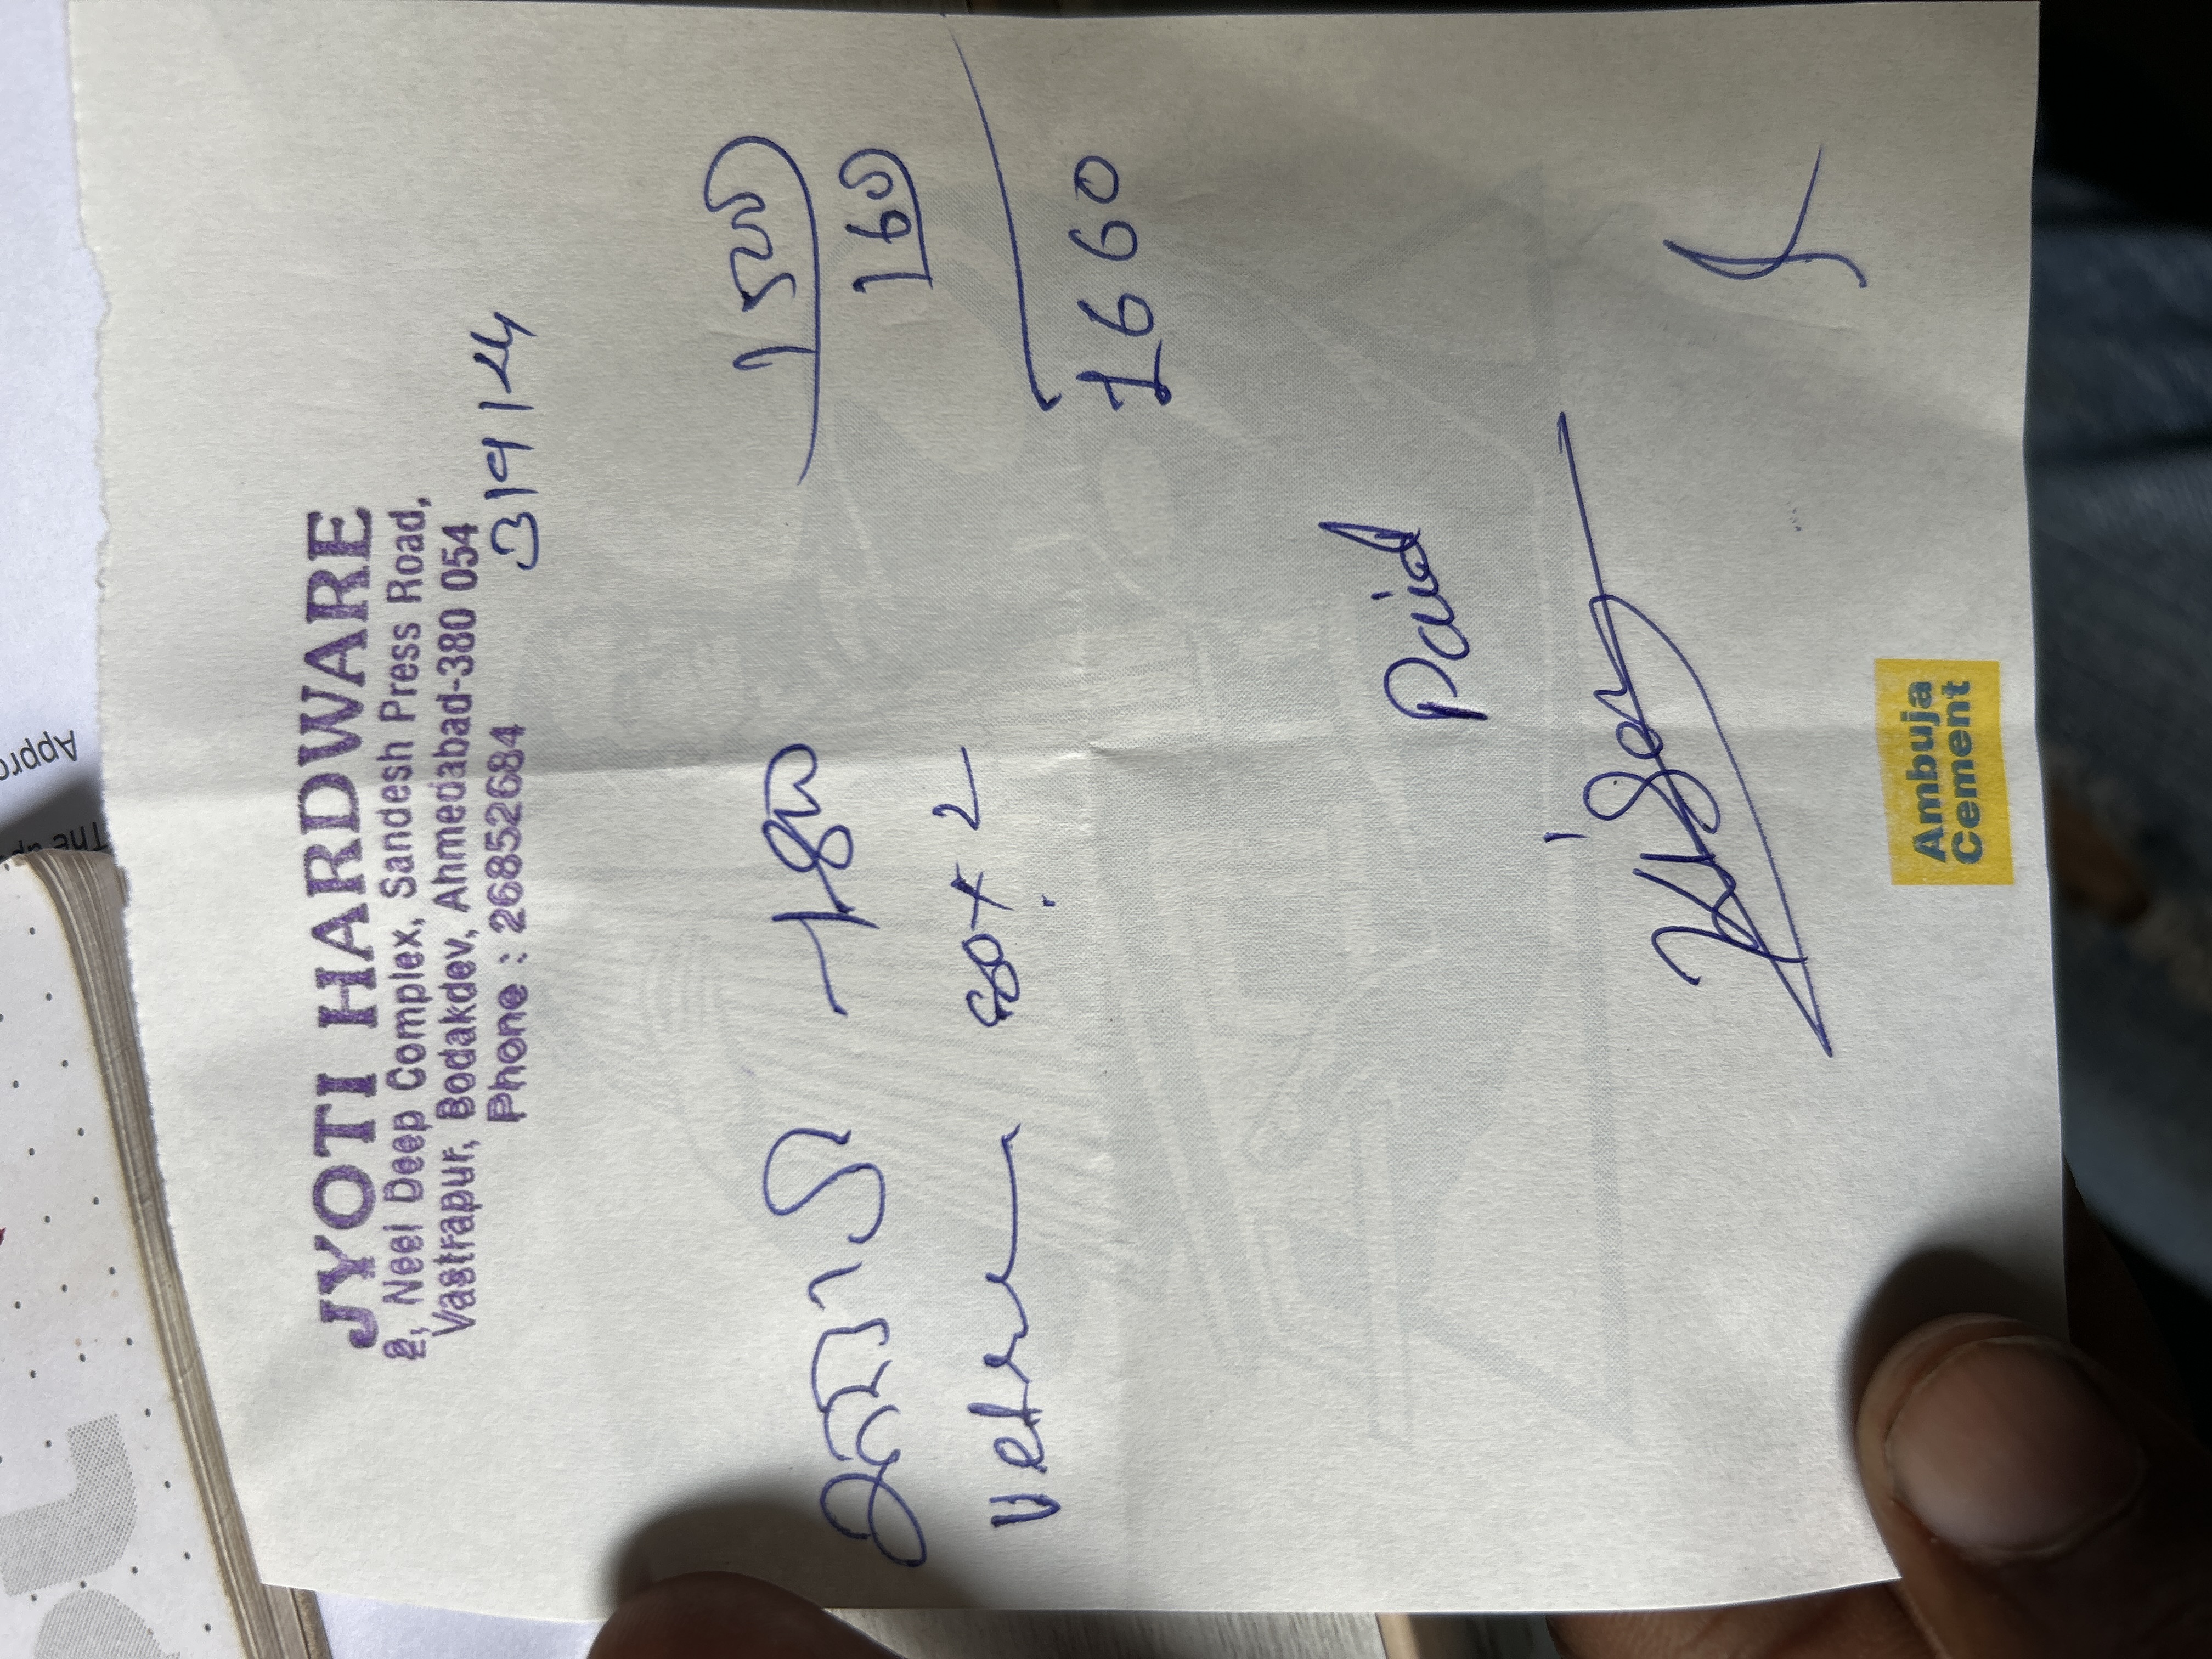 Appro
JYOTI HARDWARE
2, Neel Deep Complex, Sandesh Press Road,
Vastrapur, Bodakdev, Ahmedabad-380 054
Phone : 26852684
3/9/24
1500
80 x 2 160
1660
Paid
Ambuja
Cement